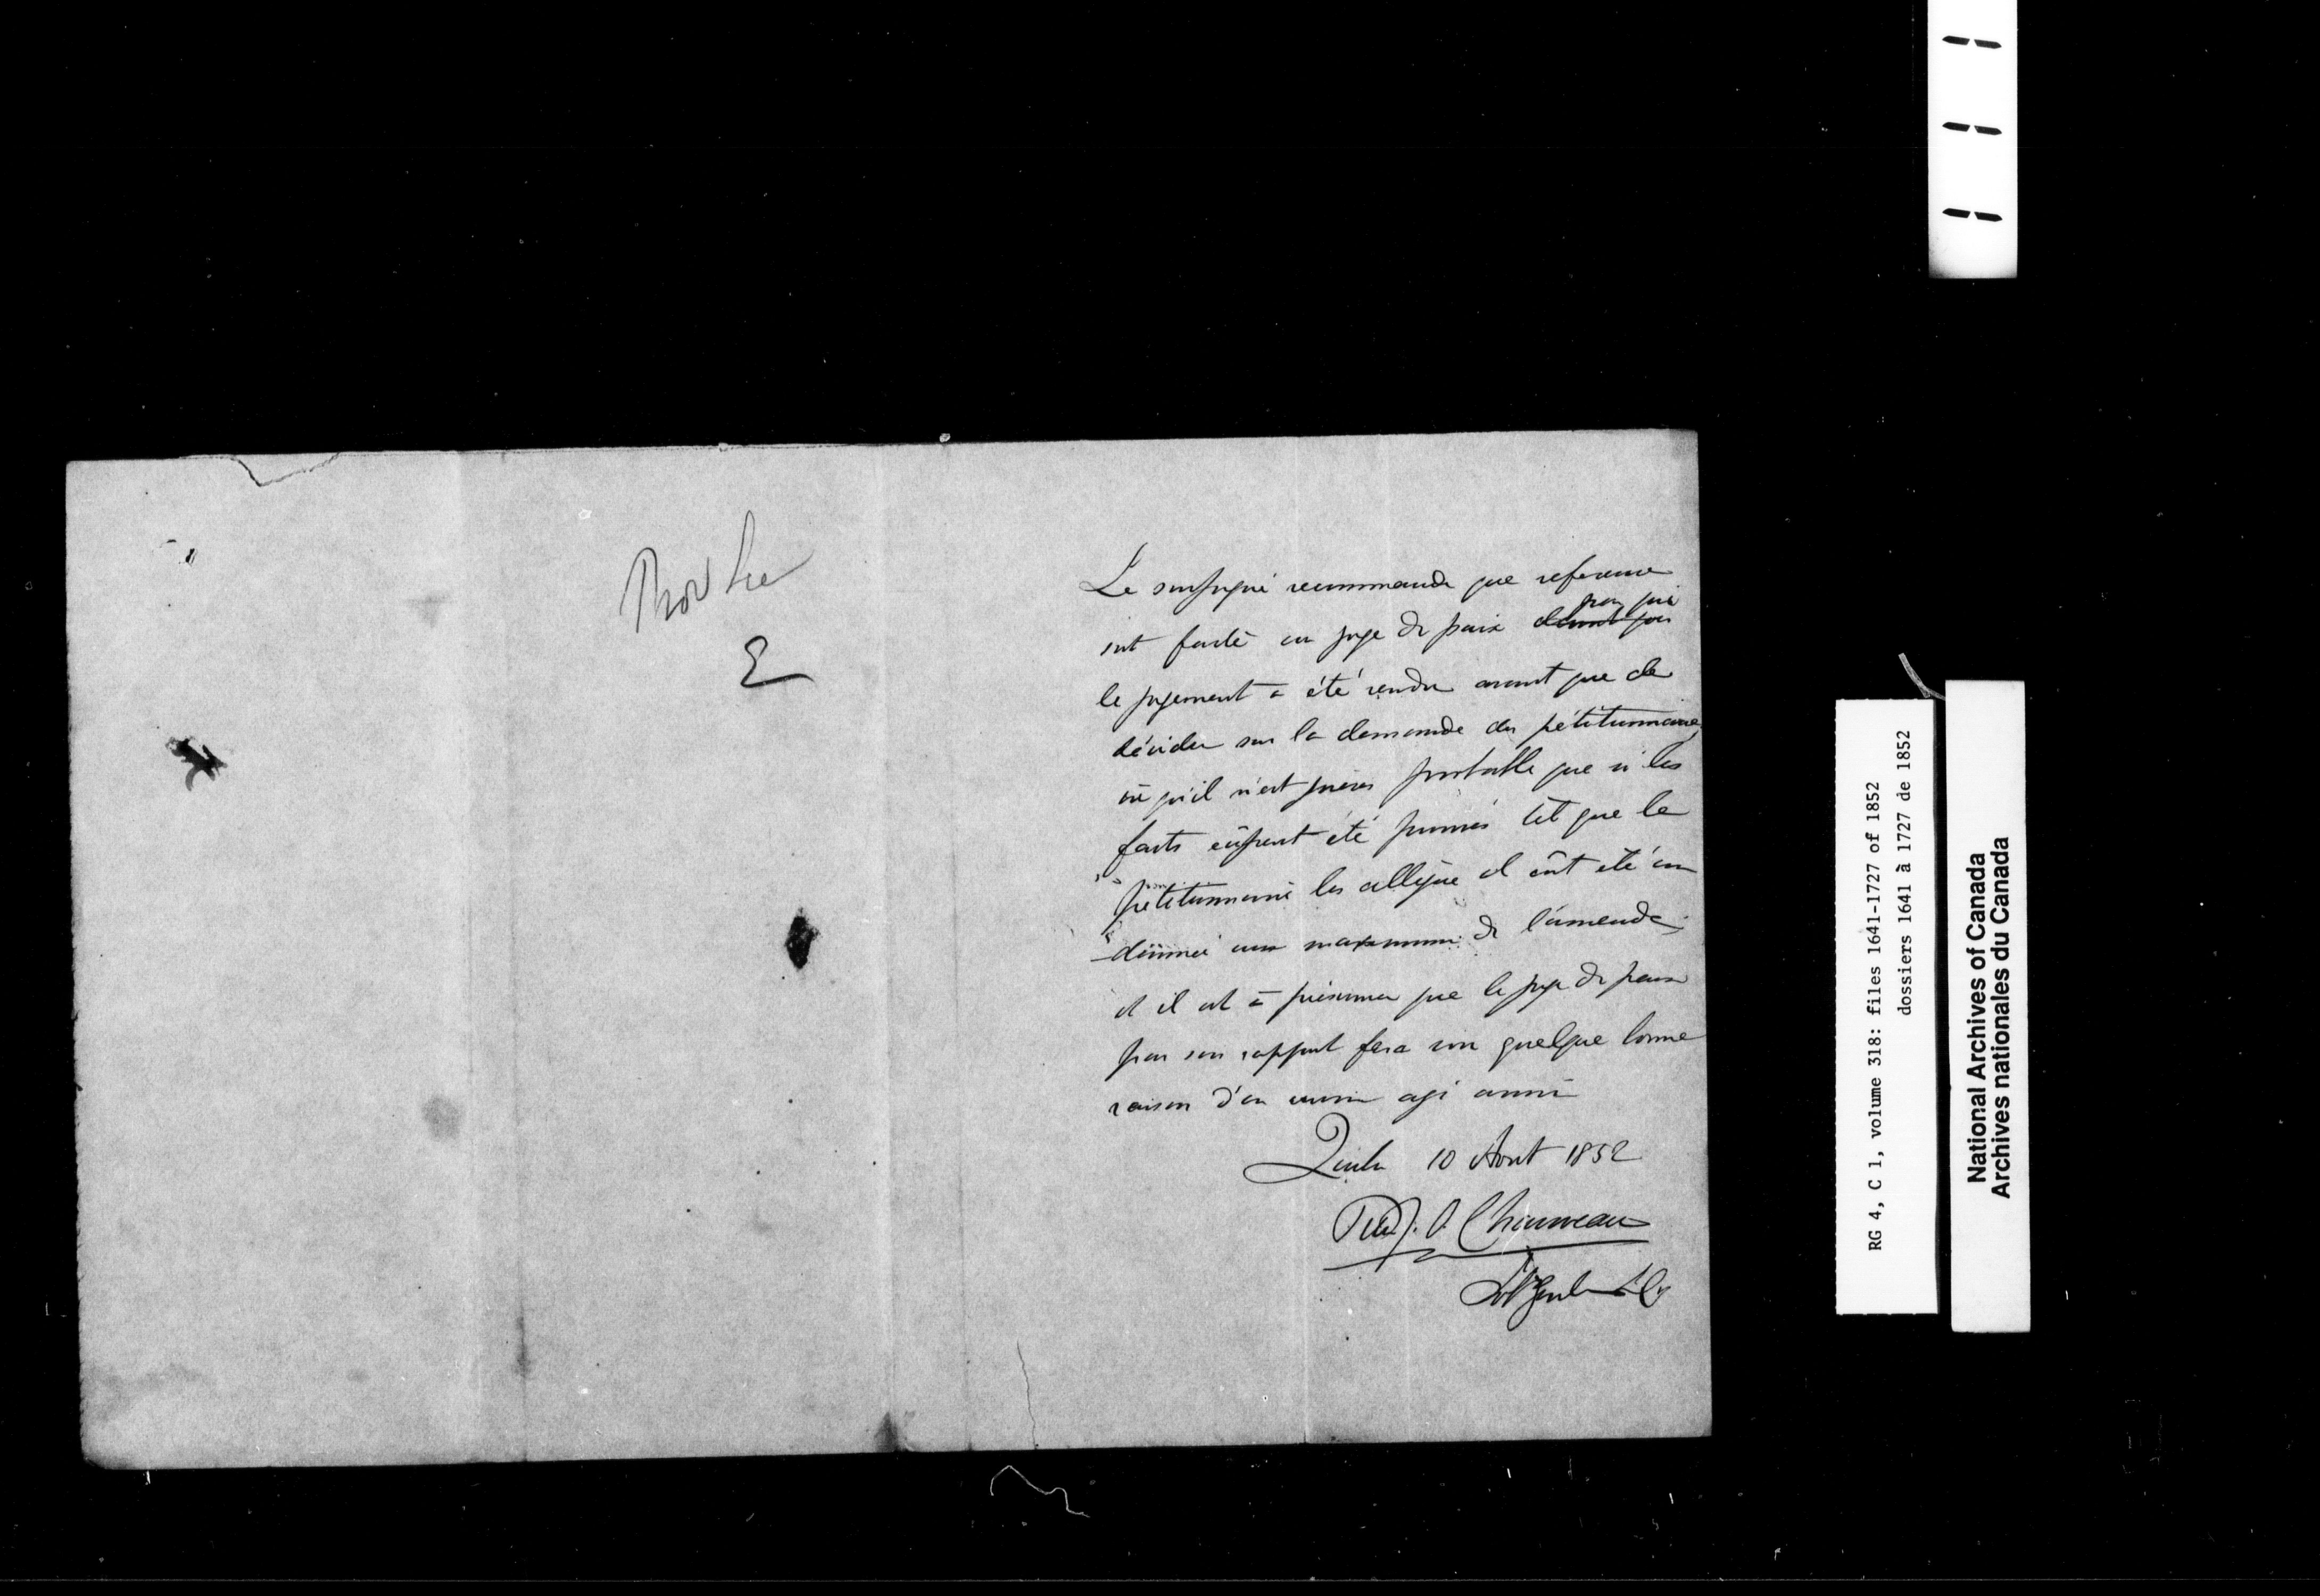 Prov Sec
Le soussigné recommande que reference
soit faite au juge de paix devant qui
par qui
le jugement a été rendu avant que de
décider sur la demande du pétitionnaire,
vu qu'il n'est guères probable que si les
faits eûssent été prouvés tel que le
pétitionnaire les allègue il eût été con
damné au maximum de l'amende;
et il est à présumer que le juge de paix
par son rapport fera voir quelque bonne
raison d'en avoir agi ainsi
Québec 10 Aout 1852
Pierre J. O. Chauveau
Sol. Genl.
RG 4, C 1, volume 318: files 1641-1727 of 1852
dossiers 1641 à 1727 de 1852
National Archives of Canada
Archives nationales du Canada